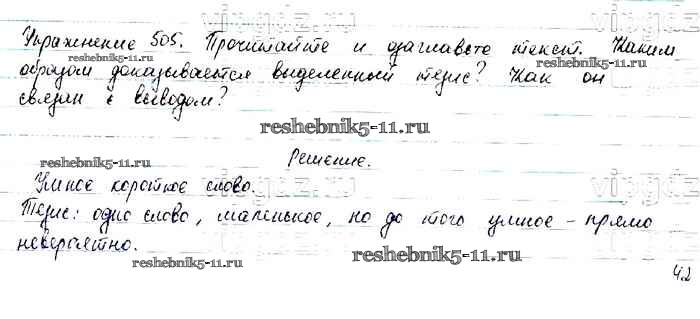 vipgdz
Упражнение 505. Прочитайте и озаглавьте текст. Каким
reshebnik5-11.ru
образом доказывается выделенный тезис? Как он
reshebnik5-11.ru
связан с выводом?
reshebnik5-11.ru
Решение.
reshebnik5-11.ru
Умное короткое слово.
vipgdz
Тезис: одно слово, маленькое, но до того умное – прямо
невероятно.
reshebnik5-11.ru
reshebnik5-11.ru
42